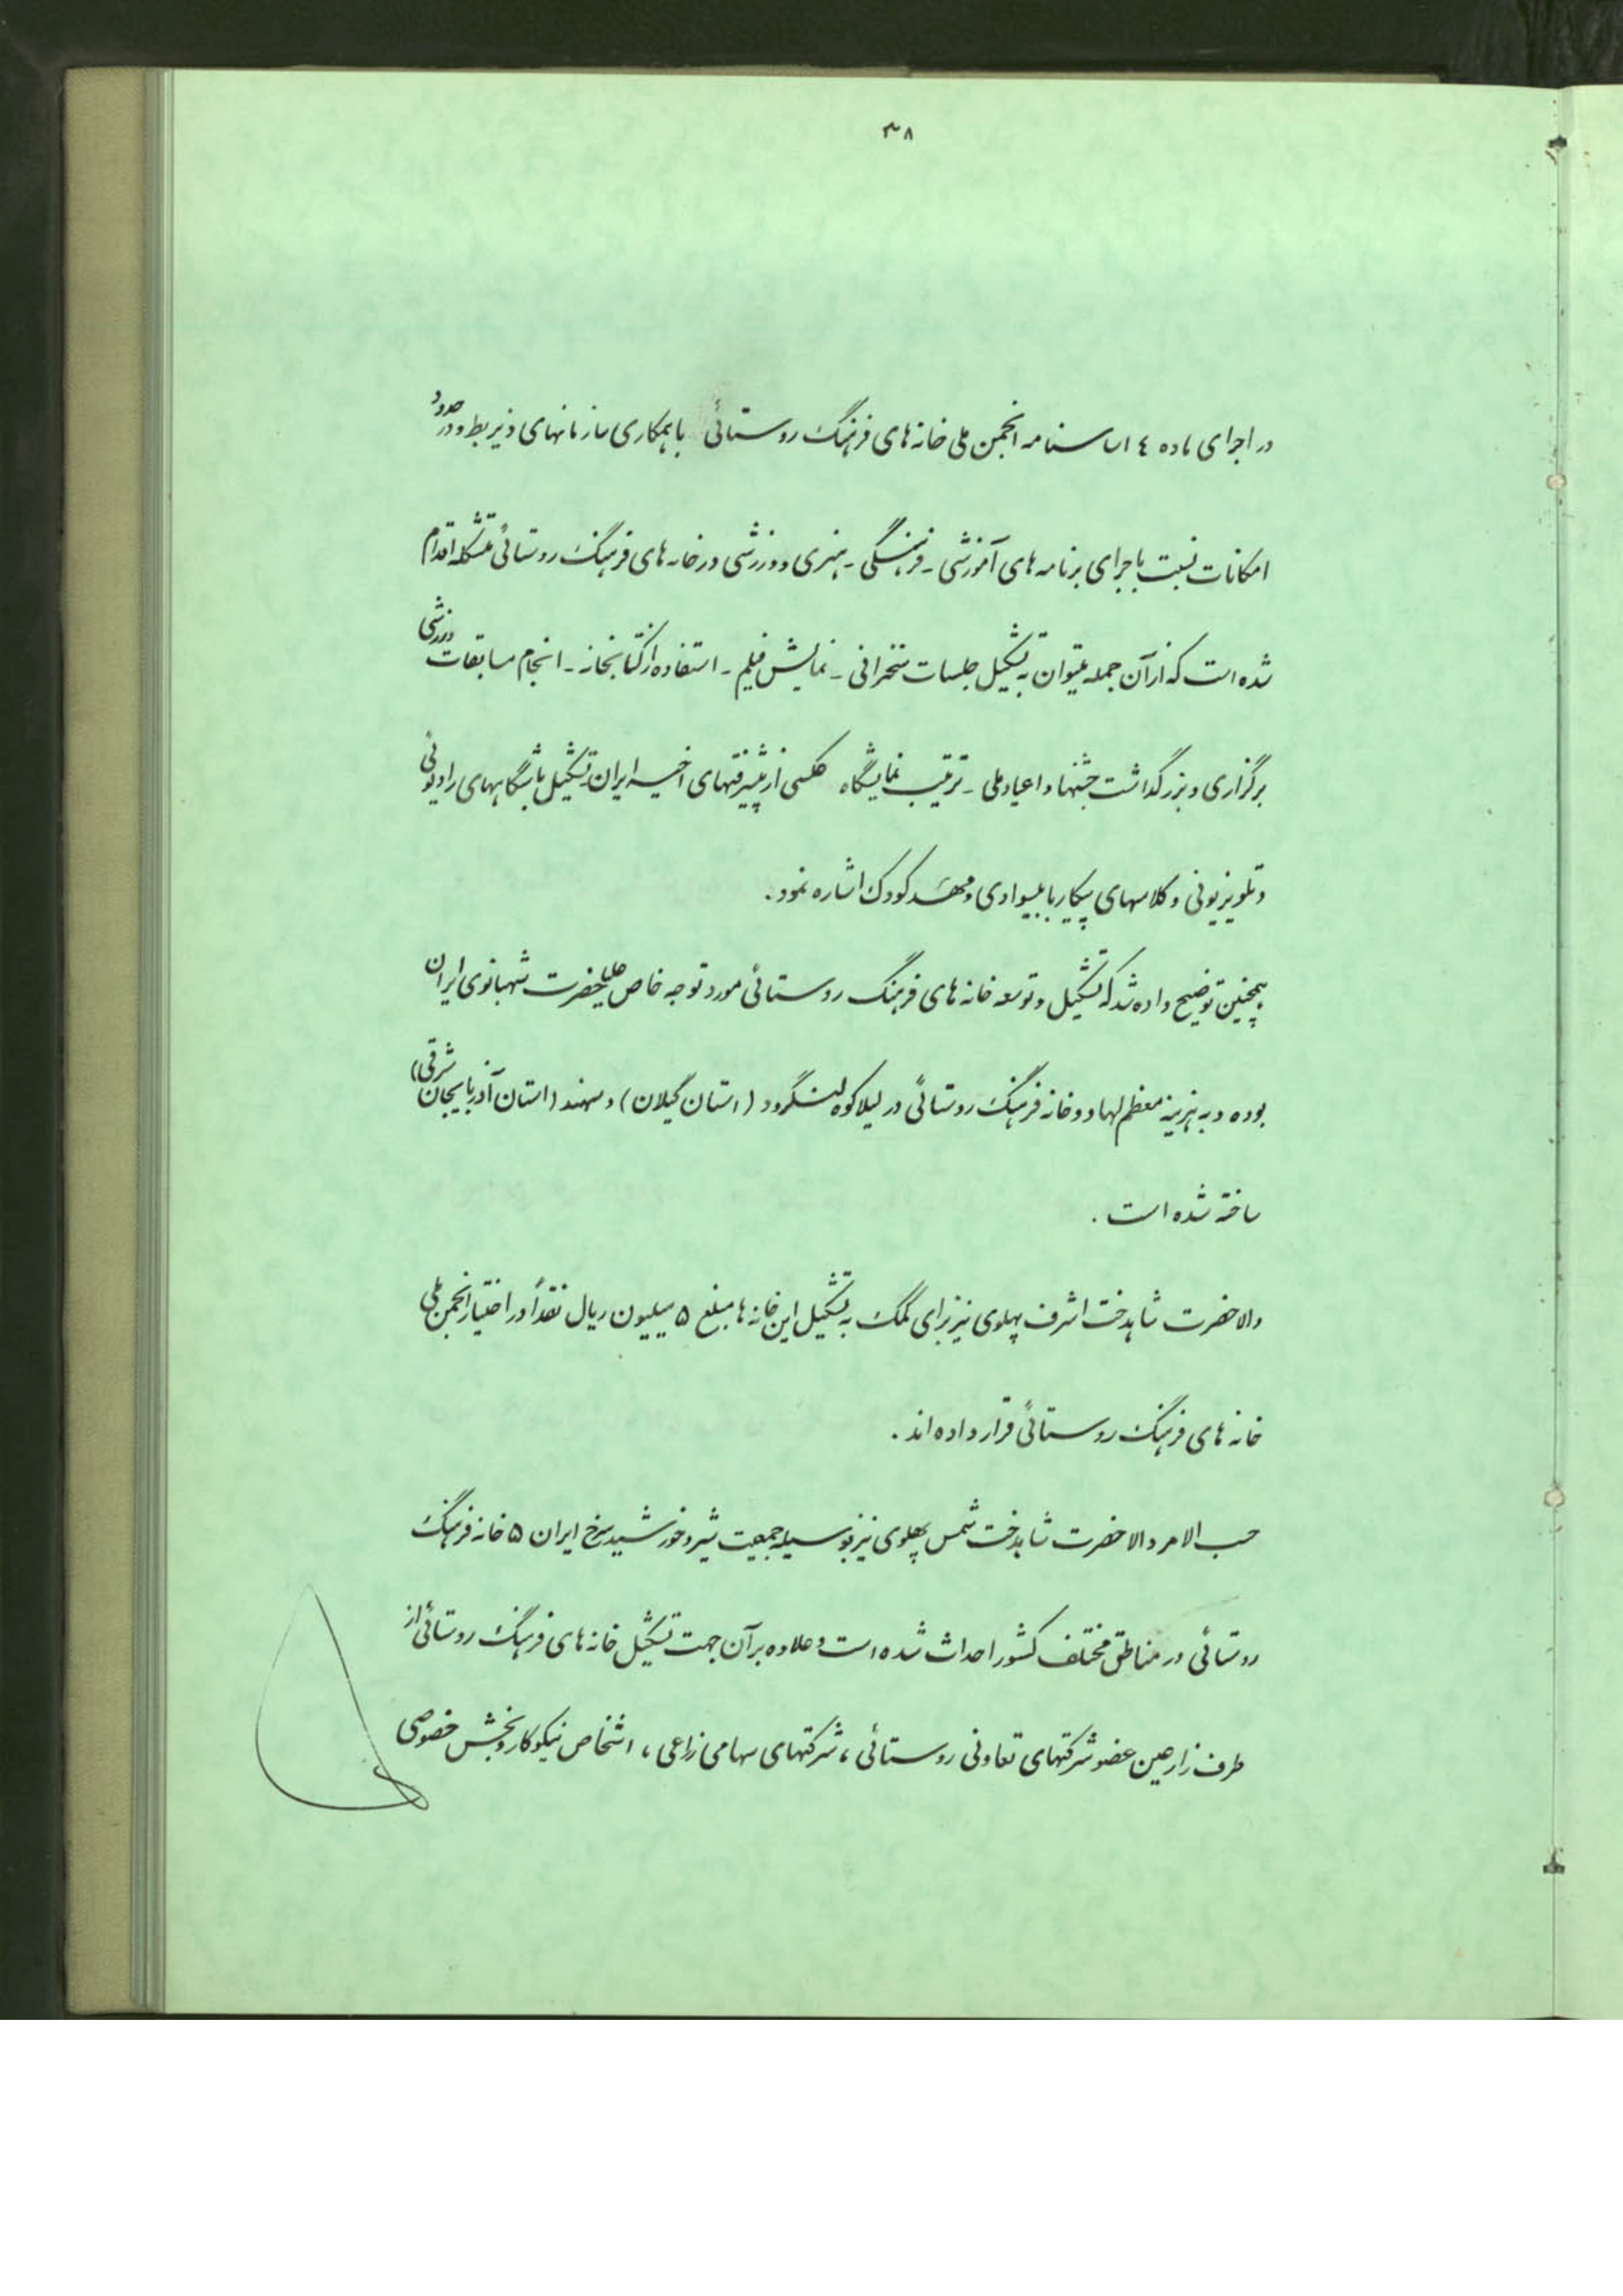 ۳۸
در اجرای ماده ٤ اساسنامه انجمن ملی خانه های فرهنگ روستائی باهمکاری سازمانهای ذیربط و در حدود
امکانات نسبت باجرای برنامه های آموزشی - فرهنگی - هنری و ورزشی در خانه های فرهنگ روستائی متشکله اقدام
شده است که از آن جمله میتوان به تشکیل جلسات سخنرانی - نمایش فیلم - استفاده از کتابخانه - انجام مسابقات ورزشی
برگزاری و بزرگداشت جشنها و اعیاد ملی - ترتیب نمایشگاه عکسی از پیشرفتهای اخیر ایران تشکیل باشگاههای رادیوئی
و تلویزیونی و کلاسهای پیکار با بیسوادی و مهد کودک اشاره نمود .
همچنین توضیح داده شد که تشکیل و توسعه خانه های فرهنگ روستائی مورد توجه خاص علیاحضرت شهبانوی ایران
بوده و به هزینه معظم لها دو خانه فرهنگ روستائی در لیلاکوه لنگرود (استان گیلان) و سهند (استان آذربایجان شرقی)
ساخته شده است .
والاحضرت شاهدخت اشرف پهلوی نیز برای کمک به تشکیل این خانه ها مبلغ ۵ میلیون ریال نقداً در اختیار انجمن ملی
خانه های فرهنگ روستائی قرار داده اند .
حسب الامر والاحضرت شاهدخت شمس پهلوی نیز بوسیله جمعیت شیر و خورشید سرخ ایران ۵ خانه فرهنگ
روستائی در مناطق مختلف کشور احداث شده است و علاوه بر آن جهت تشکیل خانه های فرهنگ روستائی از
طرف زارعین عضو شرکتهای تعاونی روستائی ، شرکتهای سهامی زراعی ، اشخاص نیکوکار و بخش خصوصی